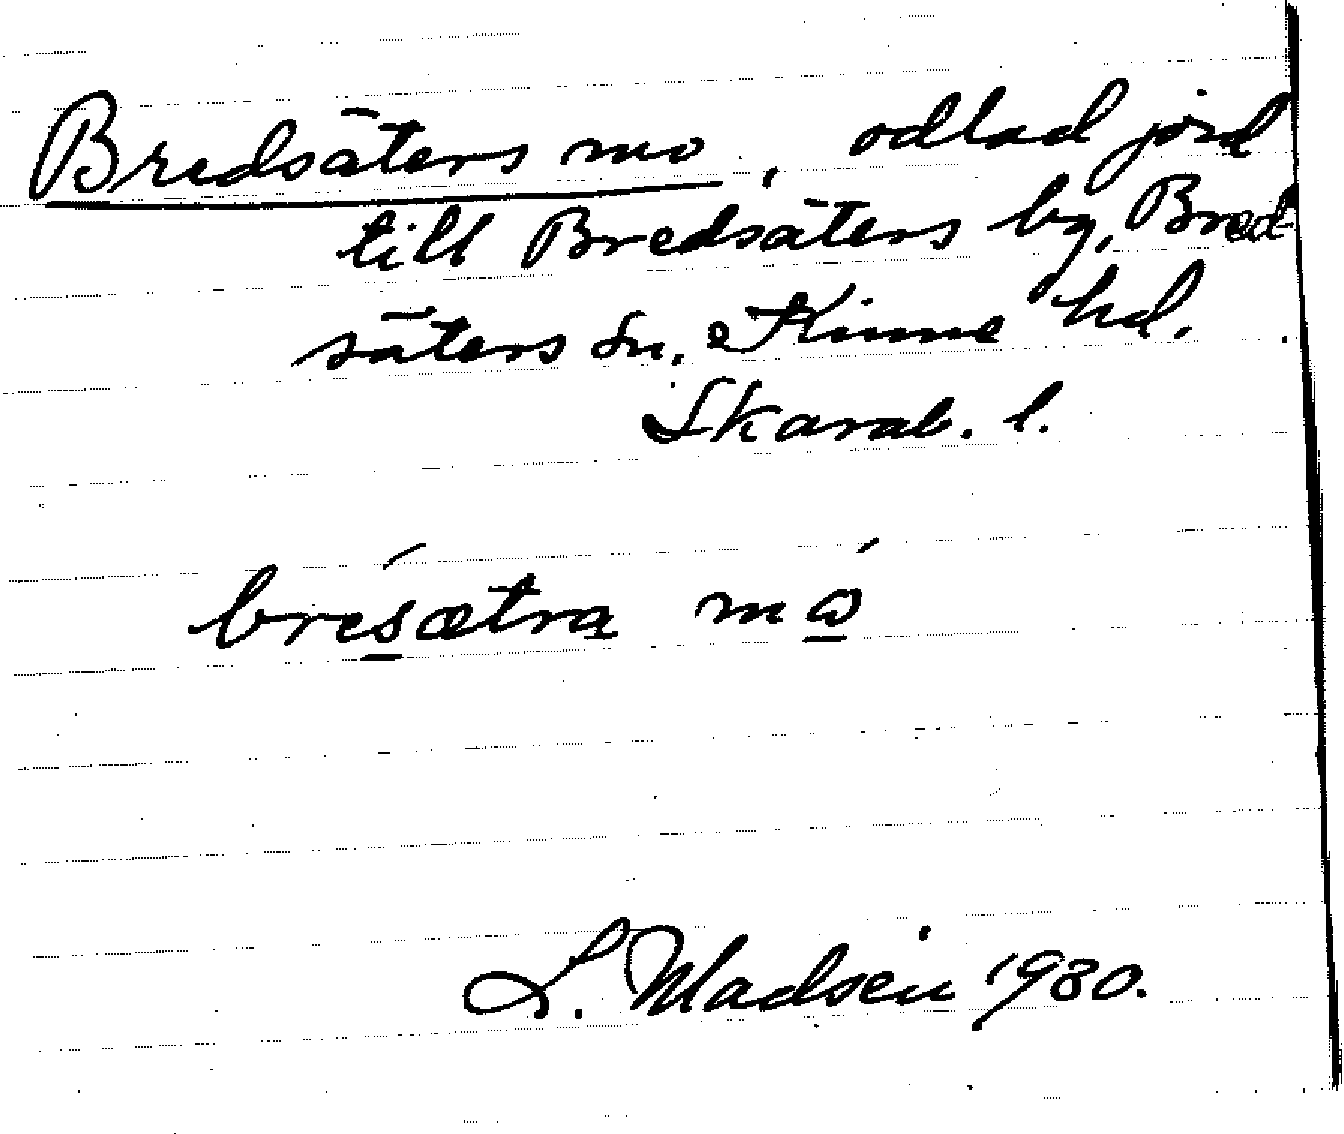 Bredsäters mo, odlad jord
till Bredsäters by, Bred-
säters sn. Kinne hd.
Skarab. l.
bresætra mω
L. Madsén 1930.